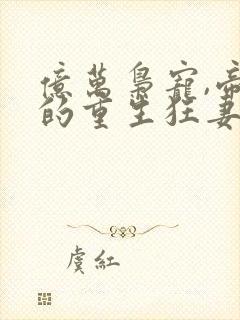 億萬梟寵,帝
的重生狂妻
虞紅